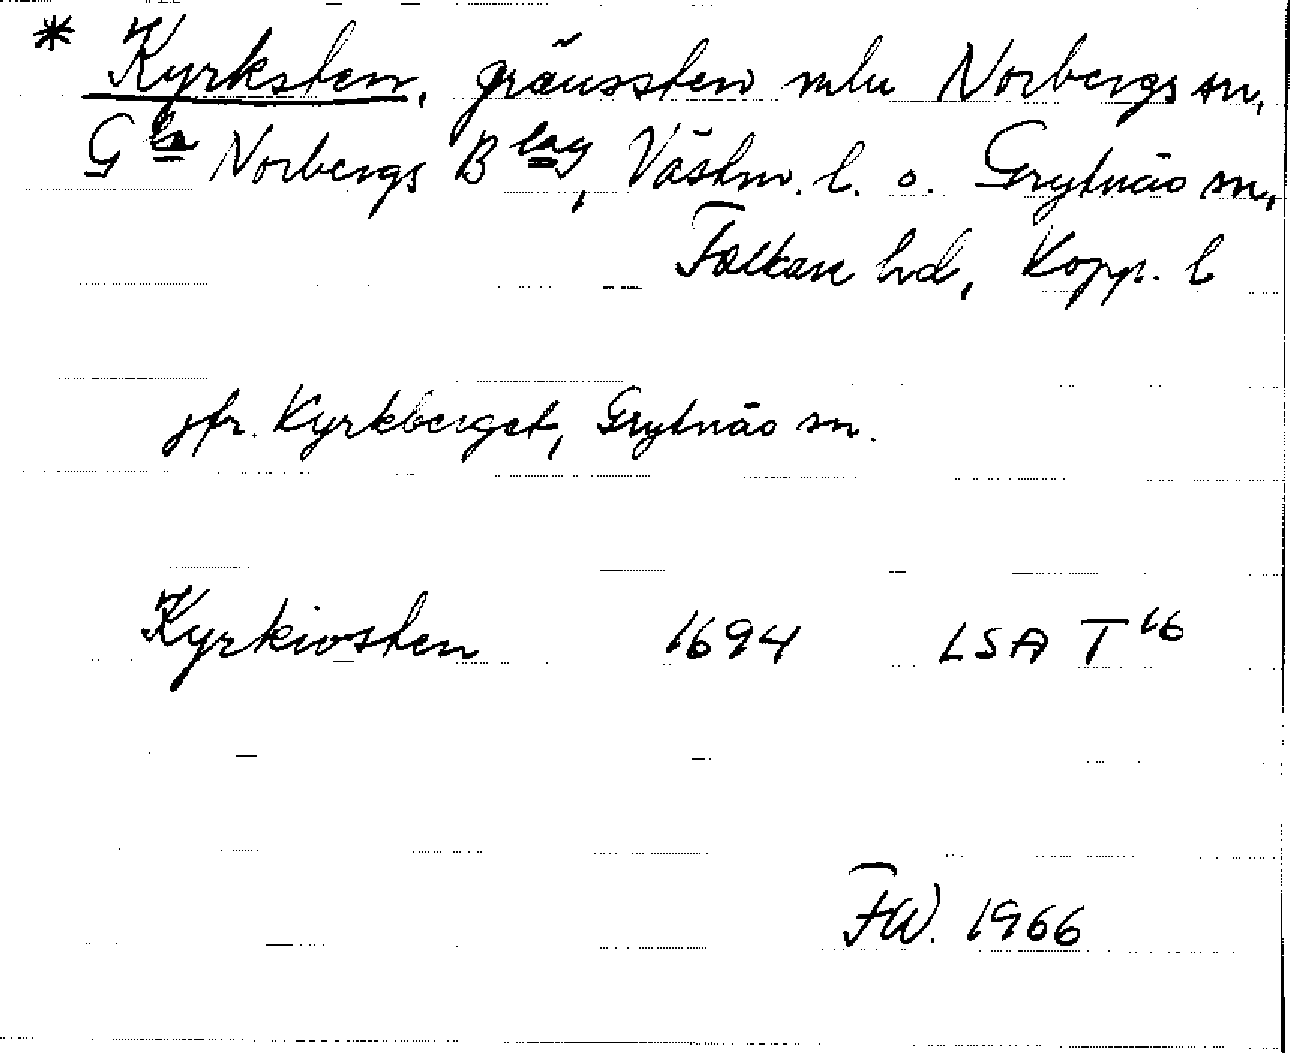 * Kyrksten, gränssten mln Norbergs sn,
Gla Norbergs Blag, Västm. l. o. Grytnäs sn,
Folkare hd, Kopp. l
jfr. Kyrkberget, Grytnäs sn.
Kyrkiosten 1694 LSA T16
FW. 1966